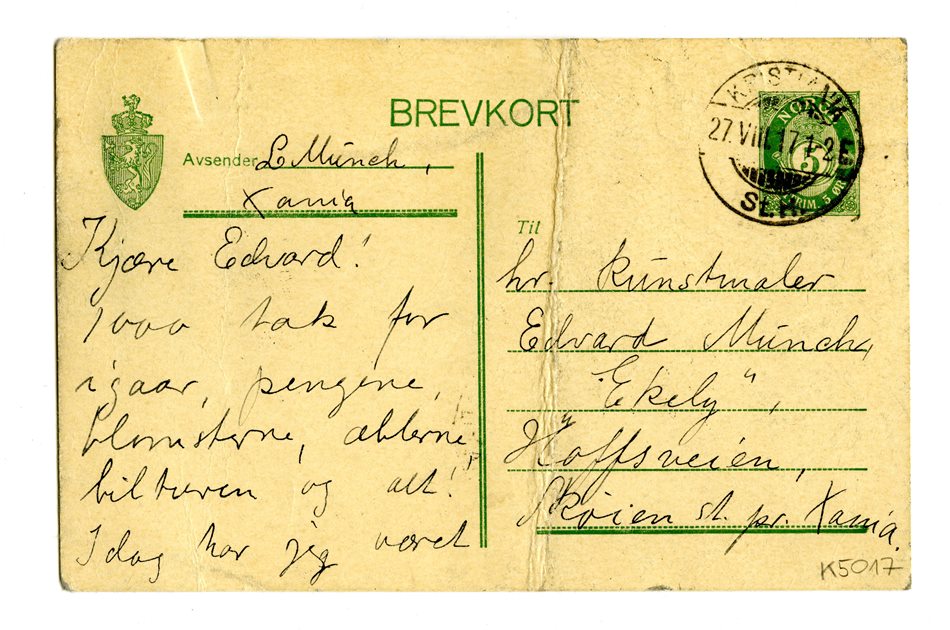 BREVKORT
Avsender L Münch,
Xania
Kjære Edvard!
1000 tak for
igaar, pengene,
blomsterne, æblerne
bilturen og alt!
Idag har jeg været
KRISTIANIA
27. VIII. 17 1-2 E
St. H.
NORGE
5
Til
hr. Kunstmaler
Edvard Münch,
"Ekely",
Hoffsveien,
Skøien st. pr. Xania.
K5017